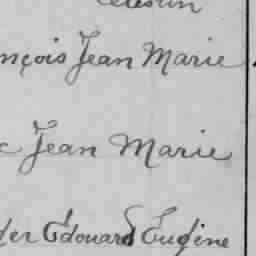 nçois Jean Marie
c Jean Marie
der Edouard Eugène